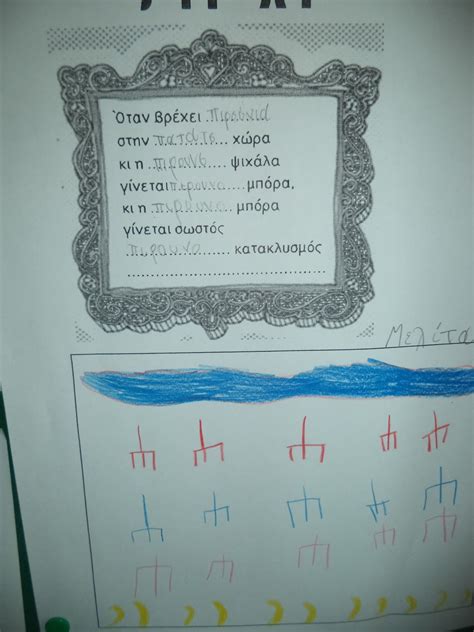 Όταν βρέχει πιρουνια
στην πατατο... χώρα
κι η πιρουνο ...... ψιχάλα
γίνεται πιρουνο .... μπόρα,
κι η .πιρουνο ..... μπόρα
γίνεται σωστός
πιρουνο ............ κατακλυσμός
.......................................
Μελίτα